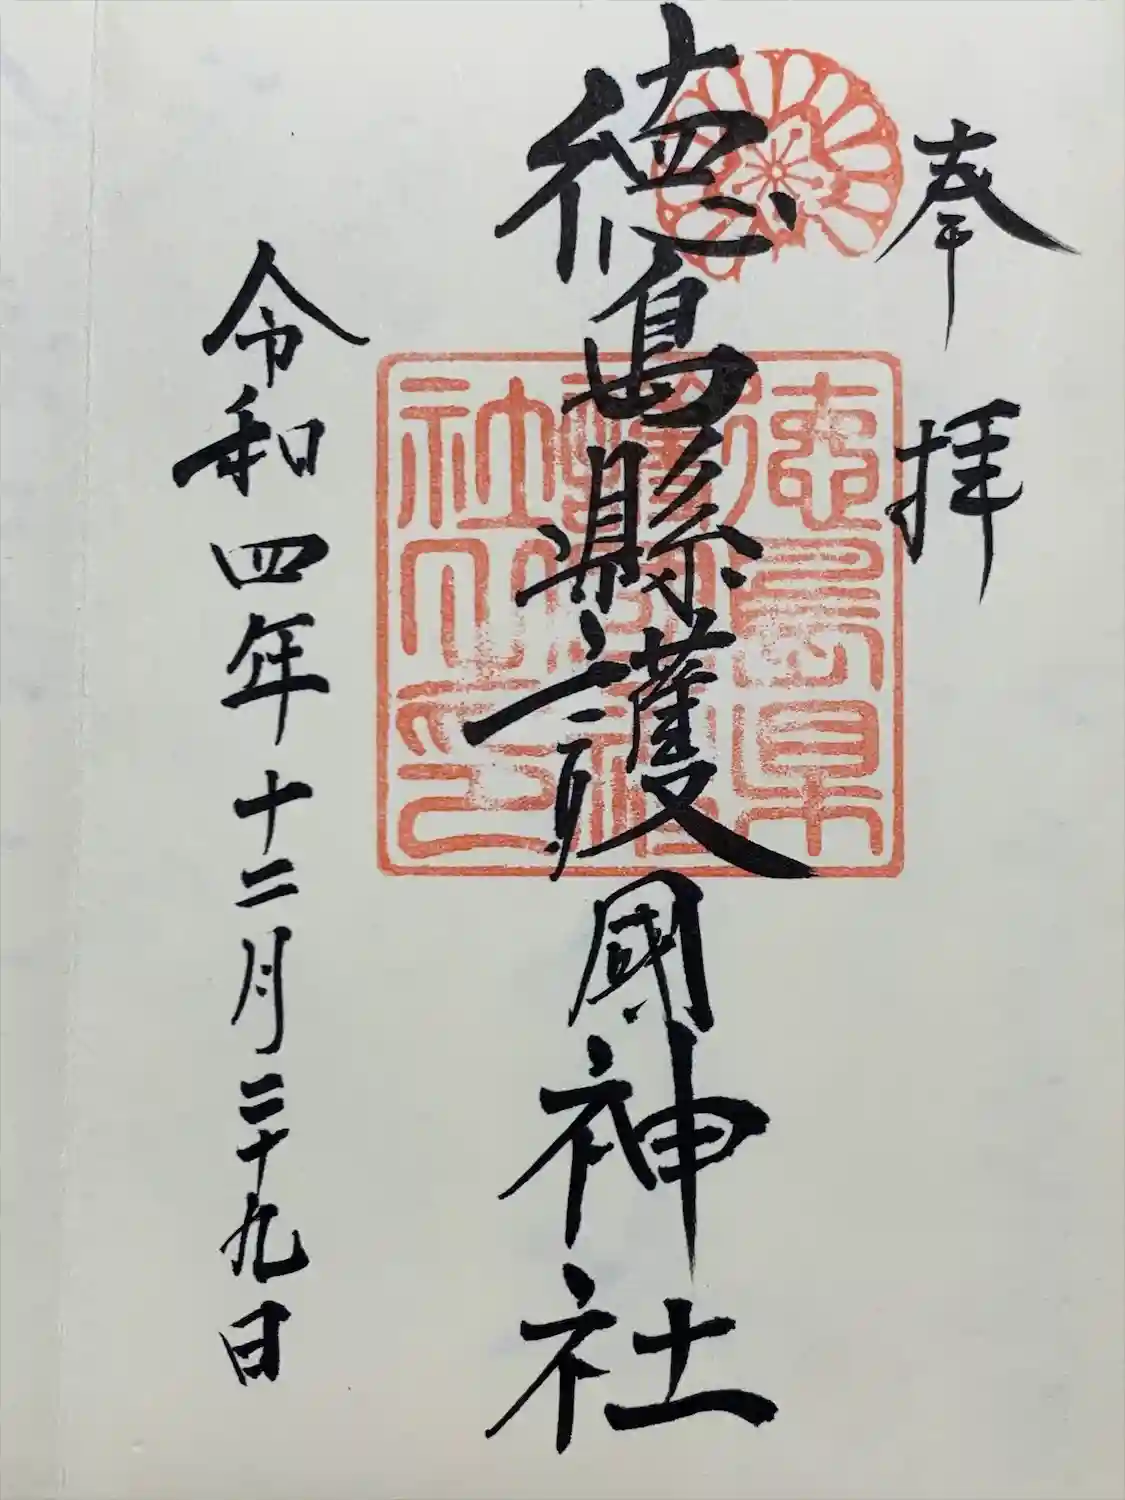 奉拝
徳島縣護國神社
徳島県
護國神
社之印
令和四年十二月二十九日